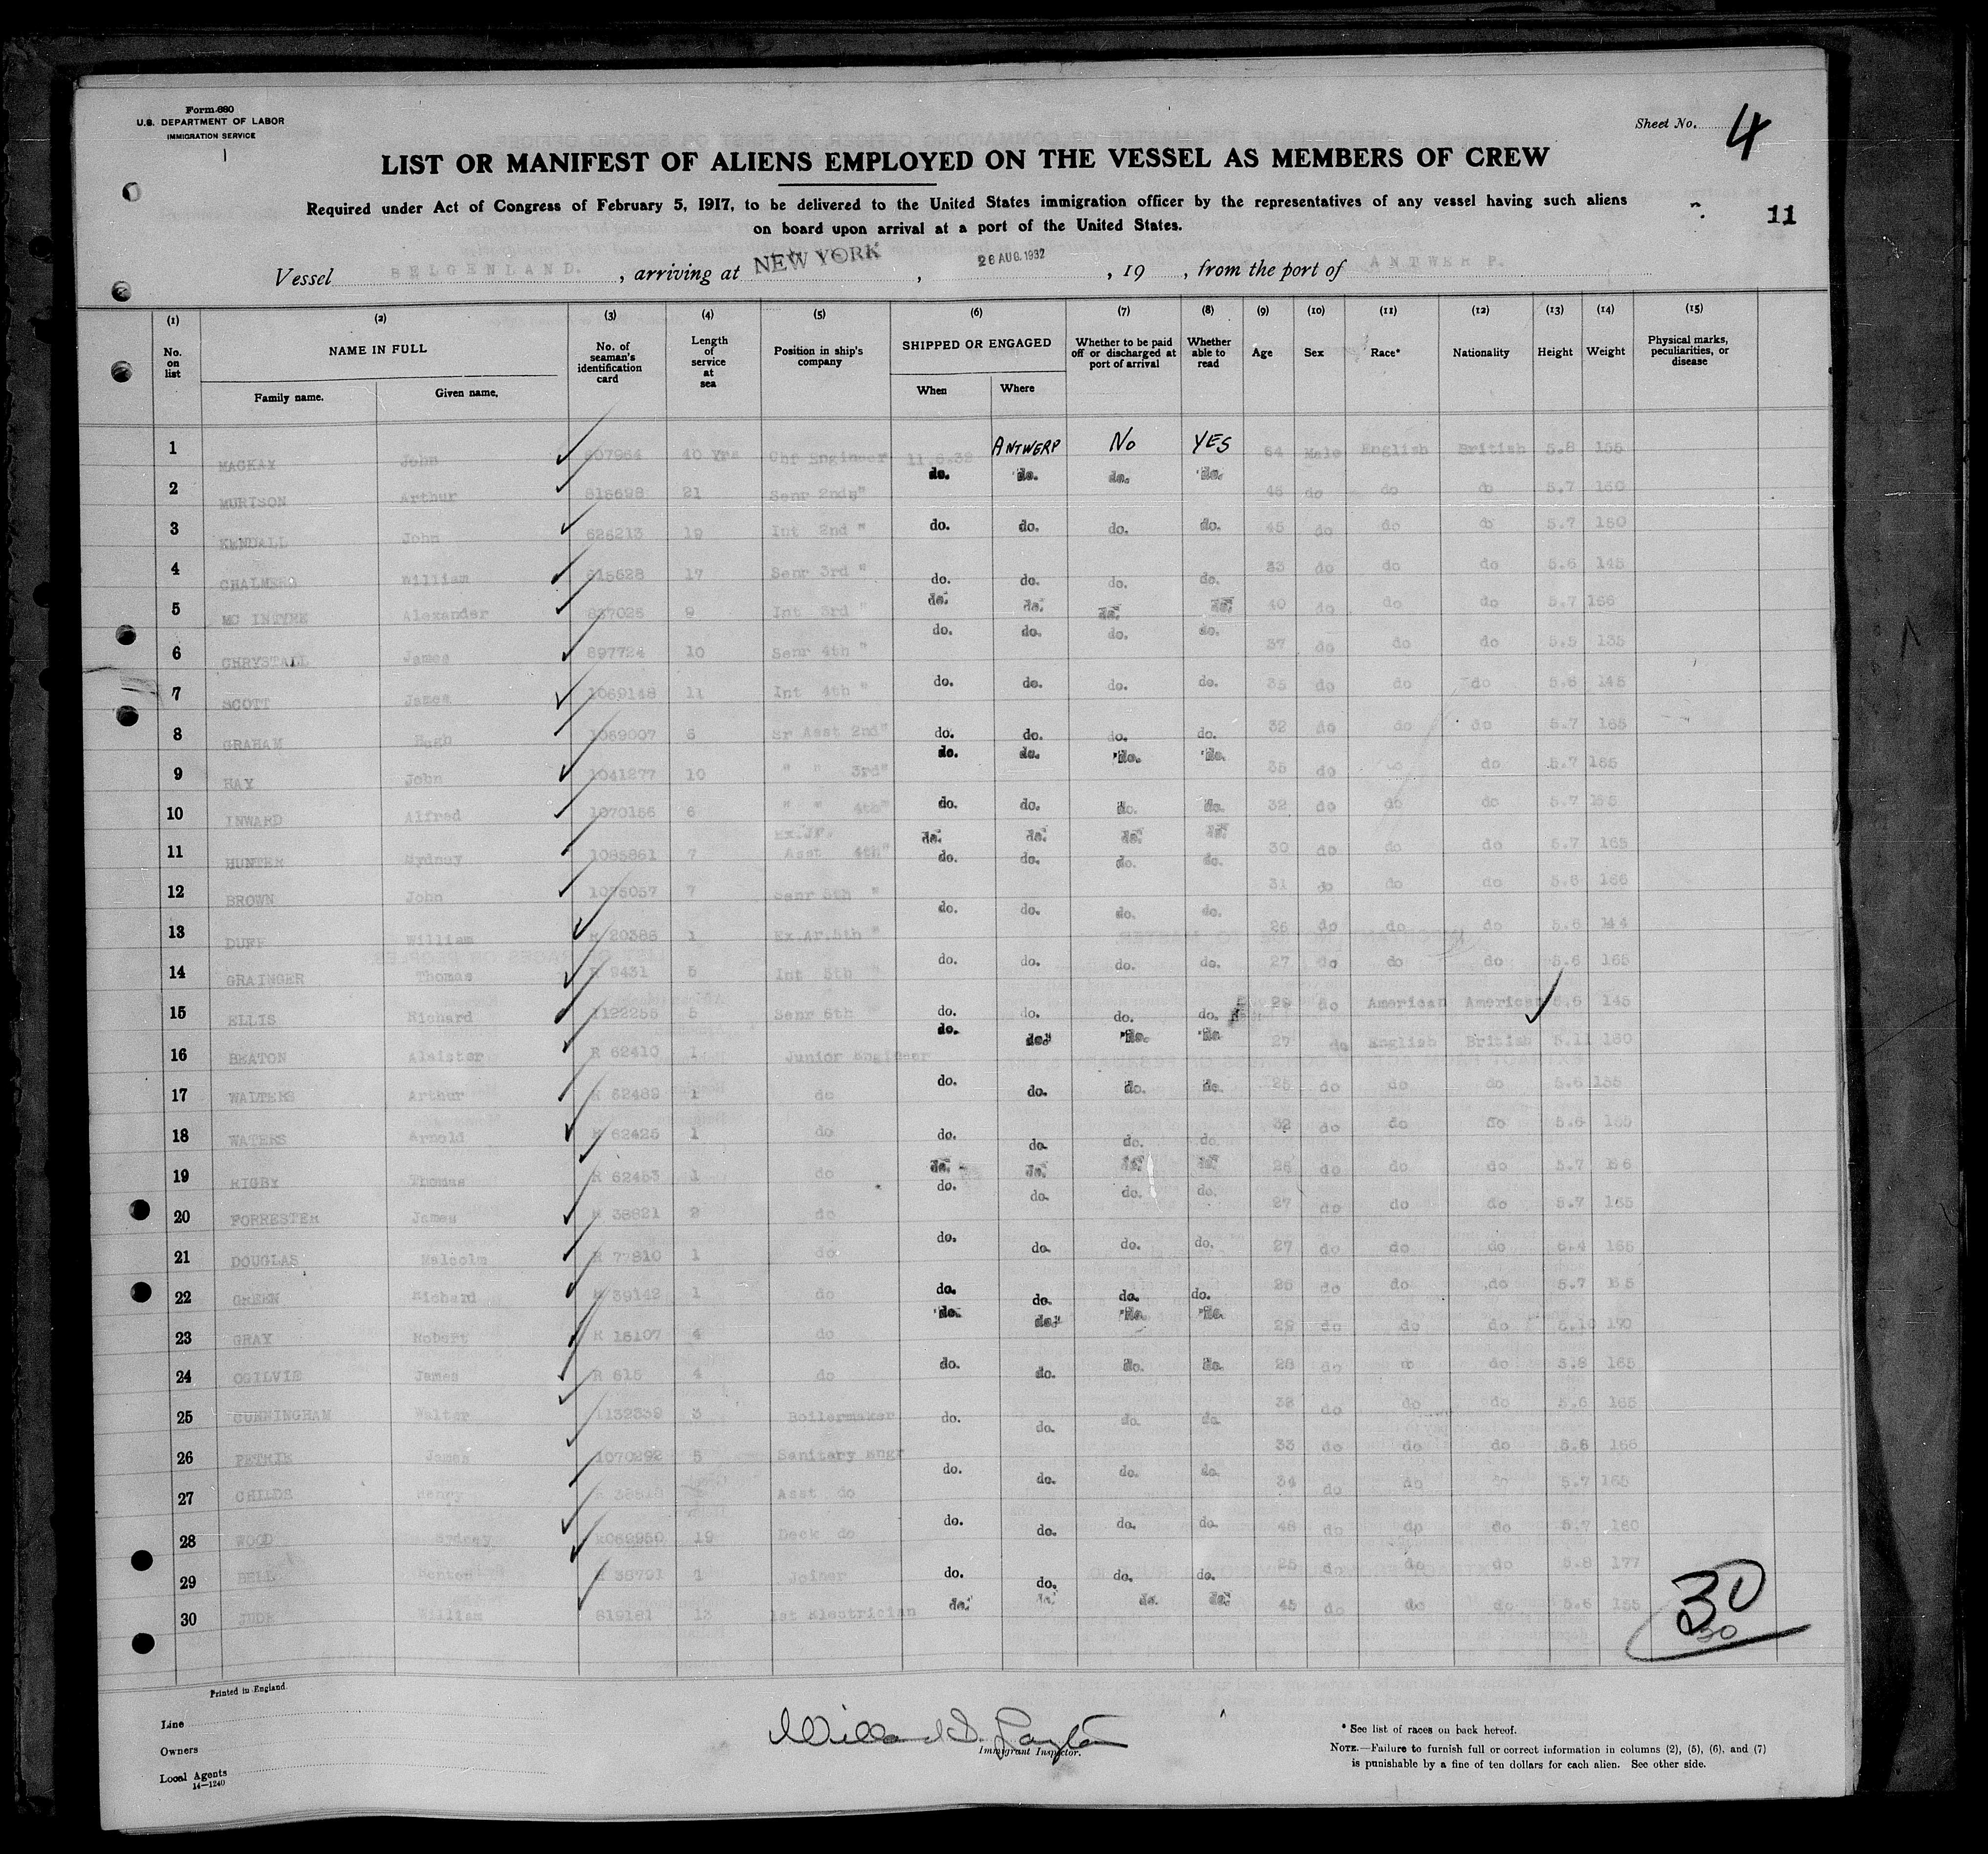 Form 680
U.S. DEPARTMENT OF LABOR
IMMIGRATION SERVICE
Sheet No. 4
LIST OR MANIFEST OF ALIENS EMPLOYED ON THE VESSEL AS MEMBERS OF CREW
Required under Act of Congress of February 5, 1917, to be delivered to the United States immigration officer by the representatives of any vessel having such aliens
on board upon arrival at a port of the United States.
11
Vessel BELGENLAND. , arriving at NEW YORK , 26 AUG. 1932 , 19 , from the port of ANTWERP.
(1) (2) (3) (4) (5) (6) (7) (8) (9) (10) (11) (12) (13) (14) (15)
No. on list NAME IN FULL Family name. Given name. No. of seaman's identification card Length of service at sea Position in ship's company SHIPPED OR ENGAGED When Where Whether to be paid off or discharged at port of arrival Whether able to read Age Sex Race* Nationality Height Weight Physical marks, peculiarities, or disease
1 MACKAY John 607964 40 Yrs Chf Engineer ANTWERP No YES 64 Male English British 5.8 155
2 MURISON Arthur 21 Senr 2nd " do. do. do. do. 45 do do do 5.7 160
3 KENDALL John 625213 19 Int 2nd " do. do. do. do. 45 do do do 5.7 160
4 CHALMERS William 615528 17 Senr 3rd " do. do. do. do. 33 do do do 5.6 145
5 MC INTYRE Alexander 837025 9 Int 3rd " do. do. do. do. 40 do do do 5.7 166
6 CHRYSTALL James 897724 10 Senr 4th " do. do. do. do. 37 do do do 5.5 135
7 SCOTT James 1069148 11 Int 4th " do. do. do. do. 35 do do do 5.6 145
8 GRAHAM Hugh 1089007 6 Sr Asst 2nd" do. do. do. do. 32 do do do 5.7 165
9 HAY John 1041277 10 " " 3rd" do. do. do. do. 35 do do do 5.7 165
10 INWARD Alfred 1070156 6 " " 4th" do. do. do. do. 32 do do do 5.7
11 HUNTER Sydney 1085861 7 Asst 4th" do. do. do. do. 30 do do do 5.7 165
12 BROWN John 7 Senr 5th " do. do. do. do. 31 do do do 5.6 166
13 DUFF William R 20386 1 5th " do. do. do. do. 26 do do do 5.6 144
14 GRAINGER Thomas R 9431 5 Int 5th " do. do. do. do. 27 do do do 5.6 165
15 ELLIS Richard 1122255 5 Senr 6th do. do. do. do. 29 do American American 5.6 145
16 BEATON Alaister R 62410 1 Junior Engineer do. do. do. do. 27 do English British 5.11 160
17 WALTERS Arthur R 62489 1 do do. do. do. do. 25 do do do 5.6 155
18 WATERS Arnold R 62425 1 do do. do. do. do. 32 do do do 5.6 165
19 RIGBY Thomas R 62453 1 do do. do. do. do. 26 do do do 5.7
20 FORRESTER James R 38821 2 do do. do. do. do. 27 do do do 5.7 165
21 DOUGLAS Malcolm R 77810 1 do do. do. do. do. 27 do do do 5.4 165
22 GREEN Richard R 39142 1 do do. do. do. do. 25 do do do 5.7
23 GRAY Robert R 15107 4 do do. do. do. do. 29 do do do 5.10 170
24 OGILVIE James R 615 4 do do. do. do. do. 28 do do do 5.8 165
25 CUNNINGHAM Walter 1132339 3 Boilermaker do. do. do. do. 38 do do do 5.6 165
26 PETRIE James 1070292 5 Sanitary Engr do. do. do. do. 33 do do do 5.8 166
27 CHILDS Henry Asst do 34 do do do 5.7 165
28 WOOD Sydney 19 Deck do do. do. do. do. 48 do do do 5.7 160
29 BELL 1 Joiner do. do. do. do. 25 do do do 5.8 177
30 JUDE William 619181 13 1st Electrician do. do. do. do. 45 do do do 5.6 155
30
30
Printed in England.
Line
Owners
Local Agents
14—1240
Immigrant Inspector.
* See list of races on back hereof.
NOTE.—Failure to furnish full or correct information in columns (2), (5), (6), and (7)
is punishable by a fine of ten dollars for each alien. See other side.